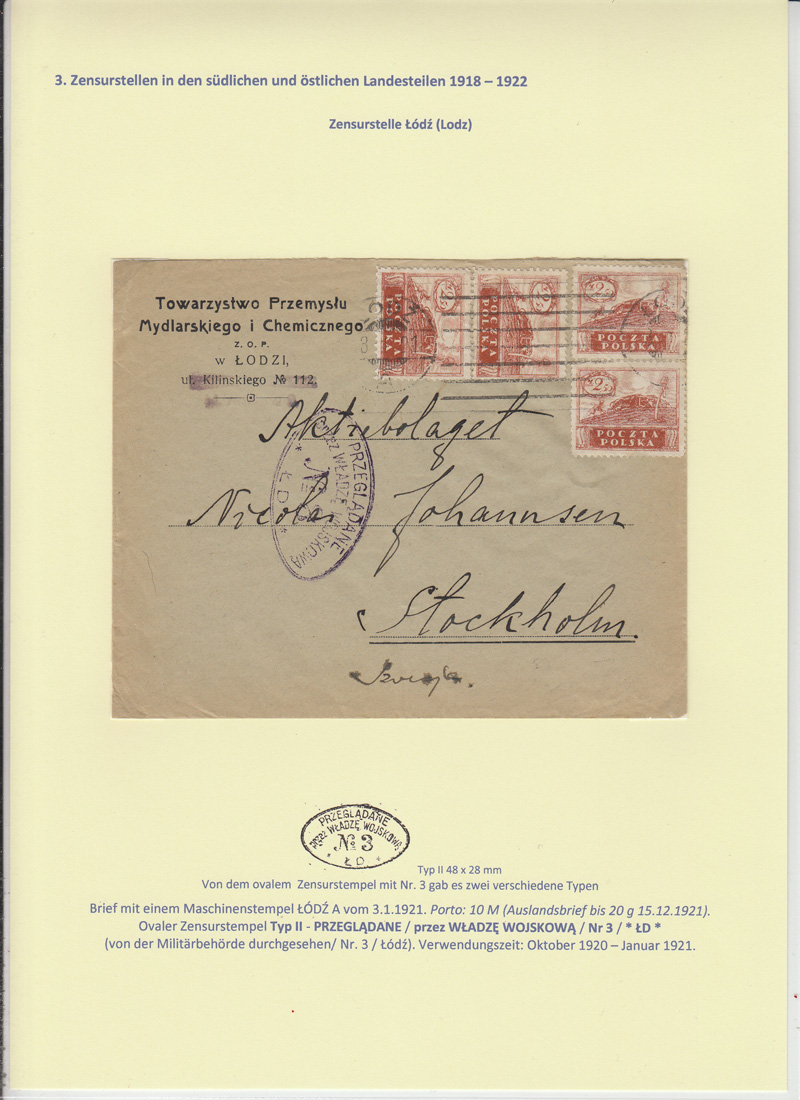 3. Zensurstellen in den südlichen und östlichen Landesteilen 1918 – 1922
Zensurstelle Łódź (Lodz)
Towarzystwo Przemysłu
Mydlarskiego i Chemicznego
z. o. p.
w ŁODZI,
ul. Kilinskiego № 112.
2 50
POCZTA
POLSKA
2 50
POCZTA
POLSKA
2 50
POCZTA
POLSKA
2 50
POCZTA
POLSKA
Aktiebolaget
PRZEGLĄDANE
przez WŁADZĘ WOJSKOWĄ
№ 3
* ŁD *
Nicolai Johannsen
Stockholm.
PRZEGLĄDANE
przez WŁADZĘ WOJSKOWĄ
№ 3
* ŁD *
Typ II 48 x 28 mm
Von dem ovalem Zensurstempel mit Nr. 3 gab es zwei verschiedene Typen
Brief mit einem Maschinenstempel ŁÓDŹ A vom 3.1.1921. Porto: 10 M (Auslandsbrief bis 20 g 15.12.1921).
Ovaler Zensurstempel Typ II - PRZEGLĄDANE / przez WŁADZĘ WOJSKOWĄ / Nr 3 / * ŁD *
(von der Militärbehörde durchgesehen/ Nr. 3 / Łódź). Verwendungszeit: Oktober 1920 – Januar 1921.